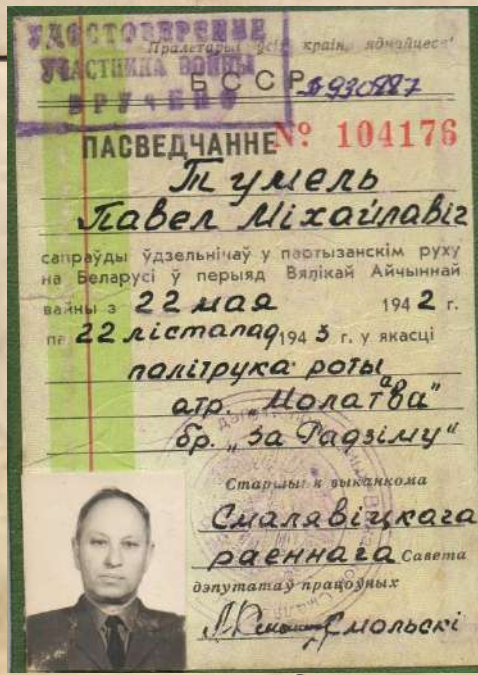 УДОСТОВЕРЕНИЕ
УЧАСТНИКА ВОЙНЫ
ВРУЧЕНО
Пралетарыі ўсіх краін, яднайцеся!
БССР
930887
ПАСВЕДЧАННЕ № 104176
Тумель
Павел Міхайлавіч
сапраўды ўдзельнічаў у партызанскім руху
на Беларусі ў перыяд Вялікай Айчыннай
вайны з 22 мая 1942 г.
па 22 лістапад 1943 г. у якасці
палітрука роты
атр. „Молатава"
бр. „За Радзіму"
Старшыня выканкома
Смалявіцкага
раённага Савета
дэпутатаў працоўных
Смольскі